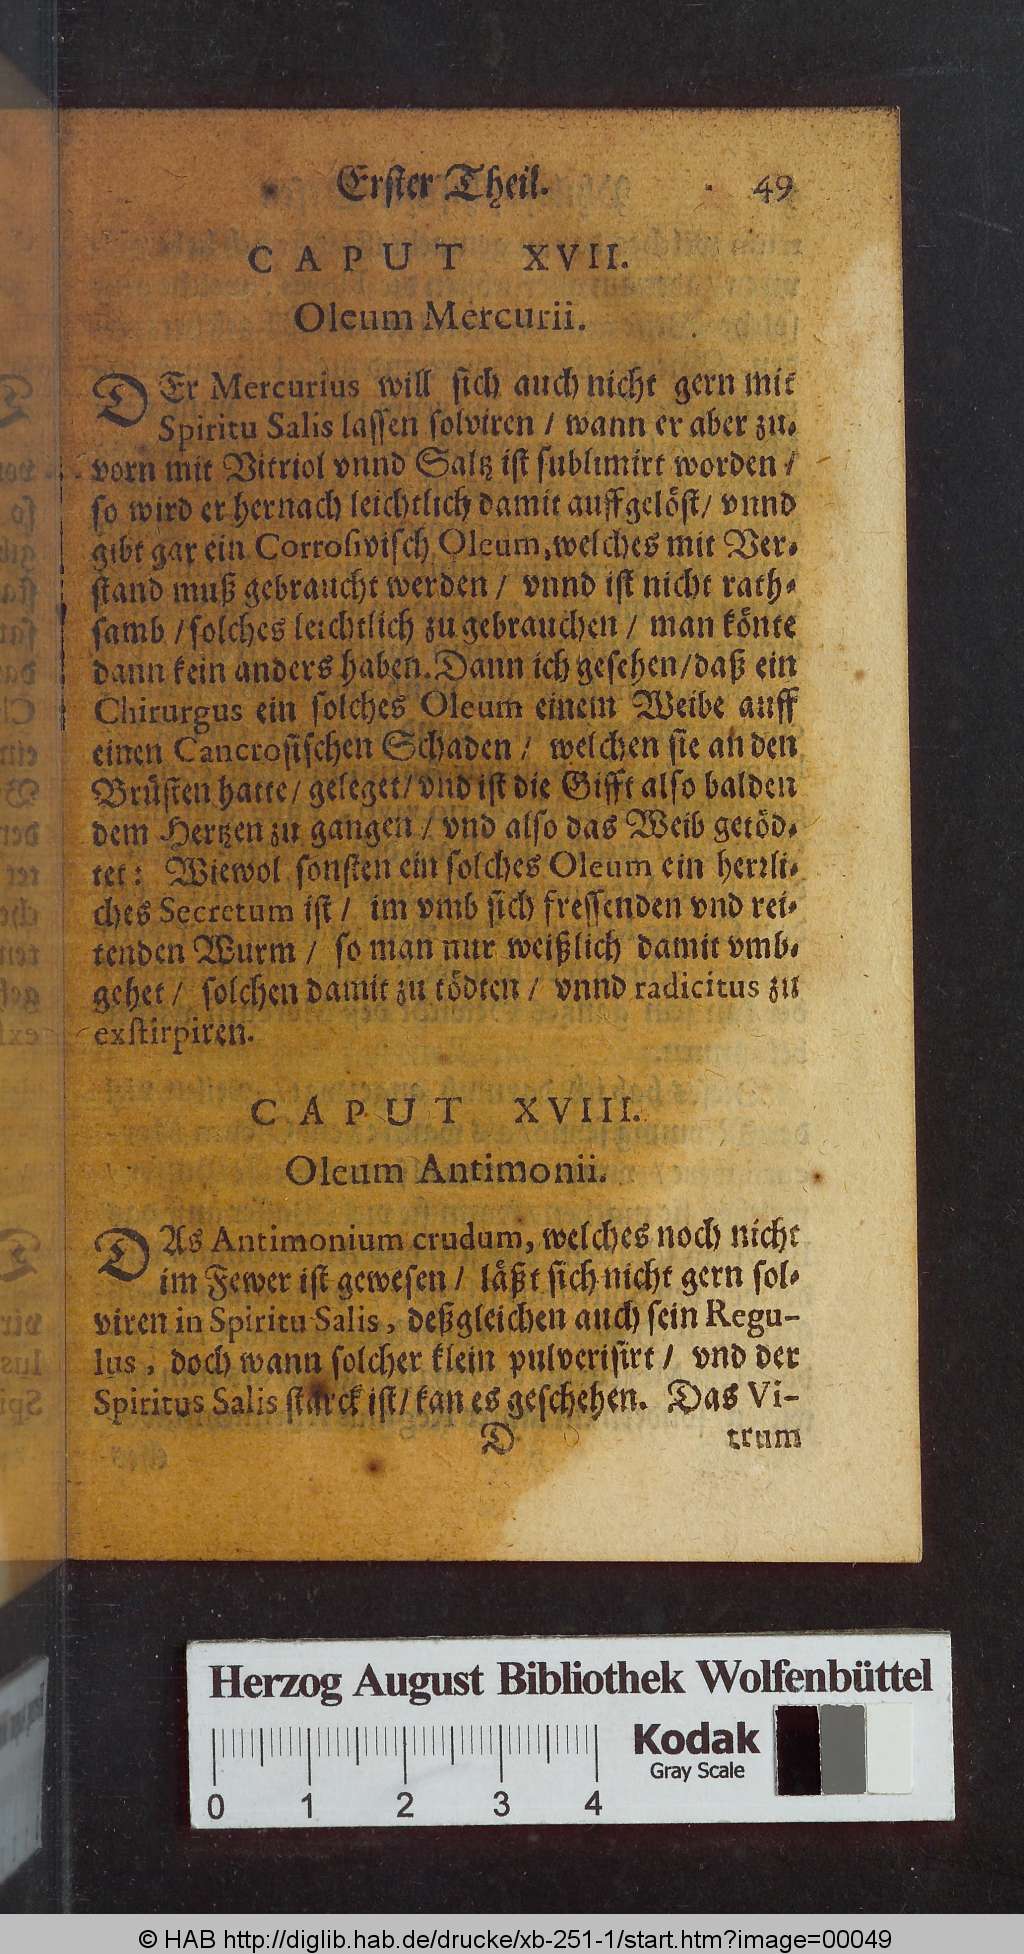 Erster Theil. 49
CAPUT XVII.
Oleum Mercurii.
DEr Mercurius will sich auch nicht gern mit
Spiritu Salis lassen solviren / wann er aber zu-
vorn mit Vitriol vnnd Saltz ist sublimirt worden /
so wird er hernach leichtlich damit auffgelöst / vnnd
gibt gar ein Corrosivisch Oleum, welches mit Ver-
stand muß gebraucht werden / vnnd ist nicht rath-
samb / solches leichtlich zu gebrauchen / man könte
dann kein anders haben. Dann ich gesehen / daß ein
Chirurgus ein solches Oleum einem Weibe auff
einen Cancrosischen Schaden / welchen sie an den
Brüsten hatte / geleget / vnd ist die Gifft also balden
dem Hertzen zu gangen / vnd also das Weib getöd-
tet: Wiewol sonsten ein solches Oleum ein herrli-
ches Secretum ist / im vmb sich fressenden vnd rei-
tenden Wurm / so man nur weißlich damit vmb-
gehet / solchen damit zu tödten / vnnd radicitus zu
exstirpiren.
CAPUT XVIII.
Oleum Antimonii.
DAs Antimonium crudum, welches noch nicht
im Fewer ist gewesen / läßt sich nicht gern sol-
viren in Spiritu Salis, deßgleichen auch sein Regu-
lus, doch wann solcher klein pulverisirt / vnd der
Spiritus Salis starck ist / kan es geschehen. Das Vi-
D trum
Herzog August Bibliothek Wolfenbüttel
Kodak
Gray Scale
0 1 2 3 4
© HAB http://diglib.hab.de/drucke/xb-251-1/start.htm?image=00049